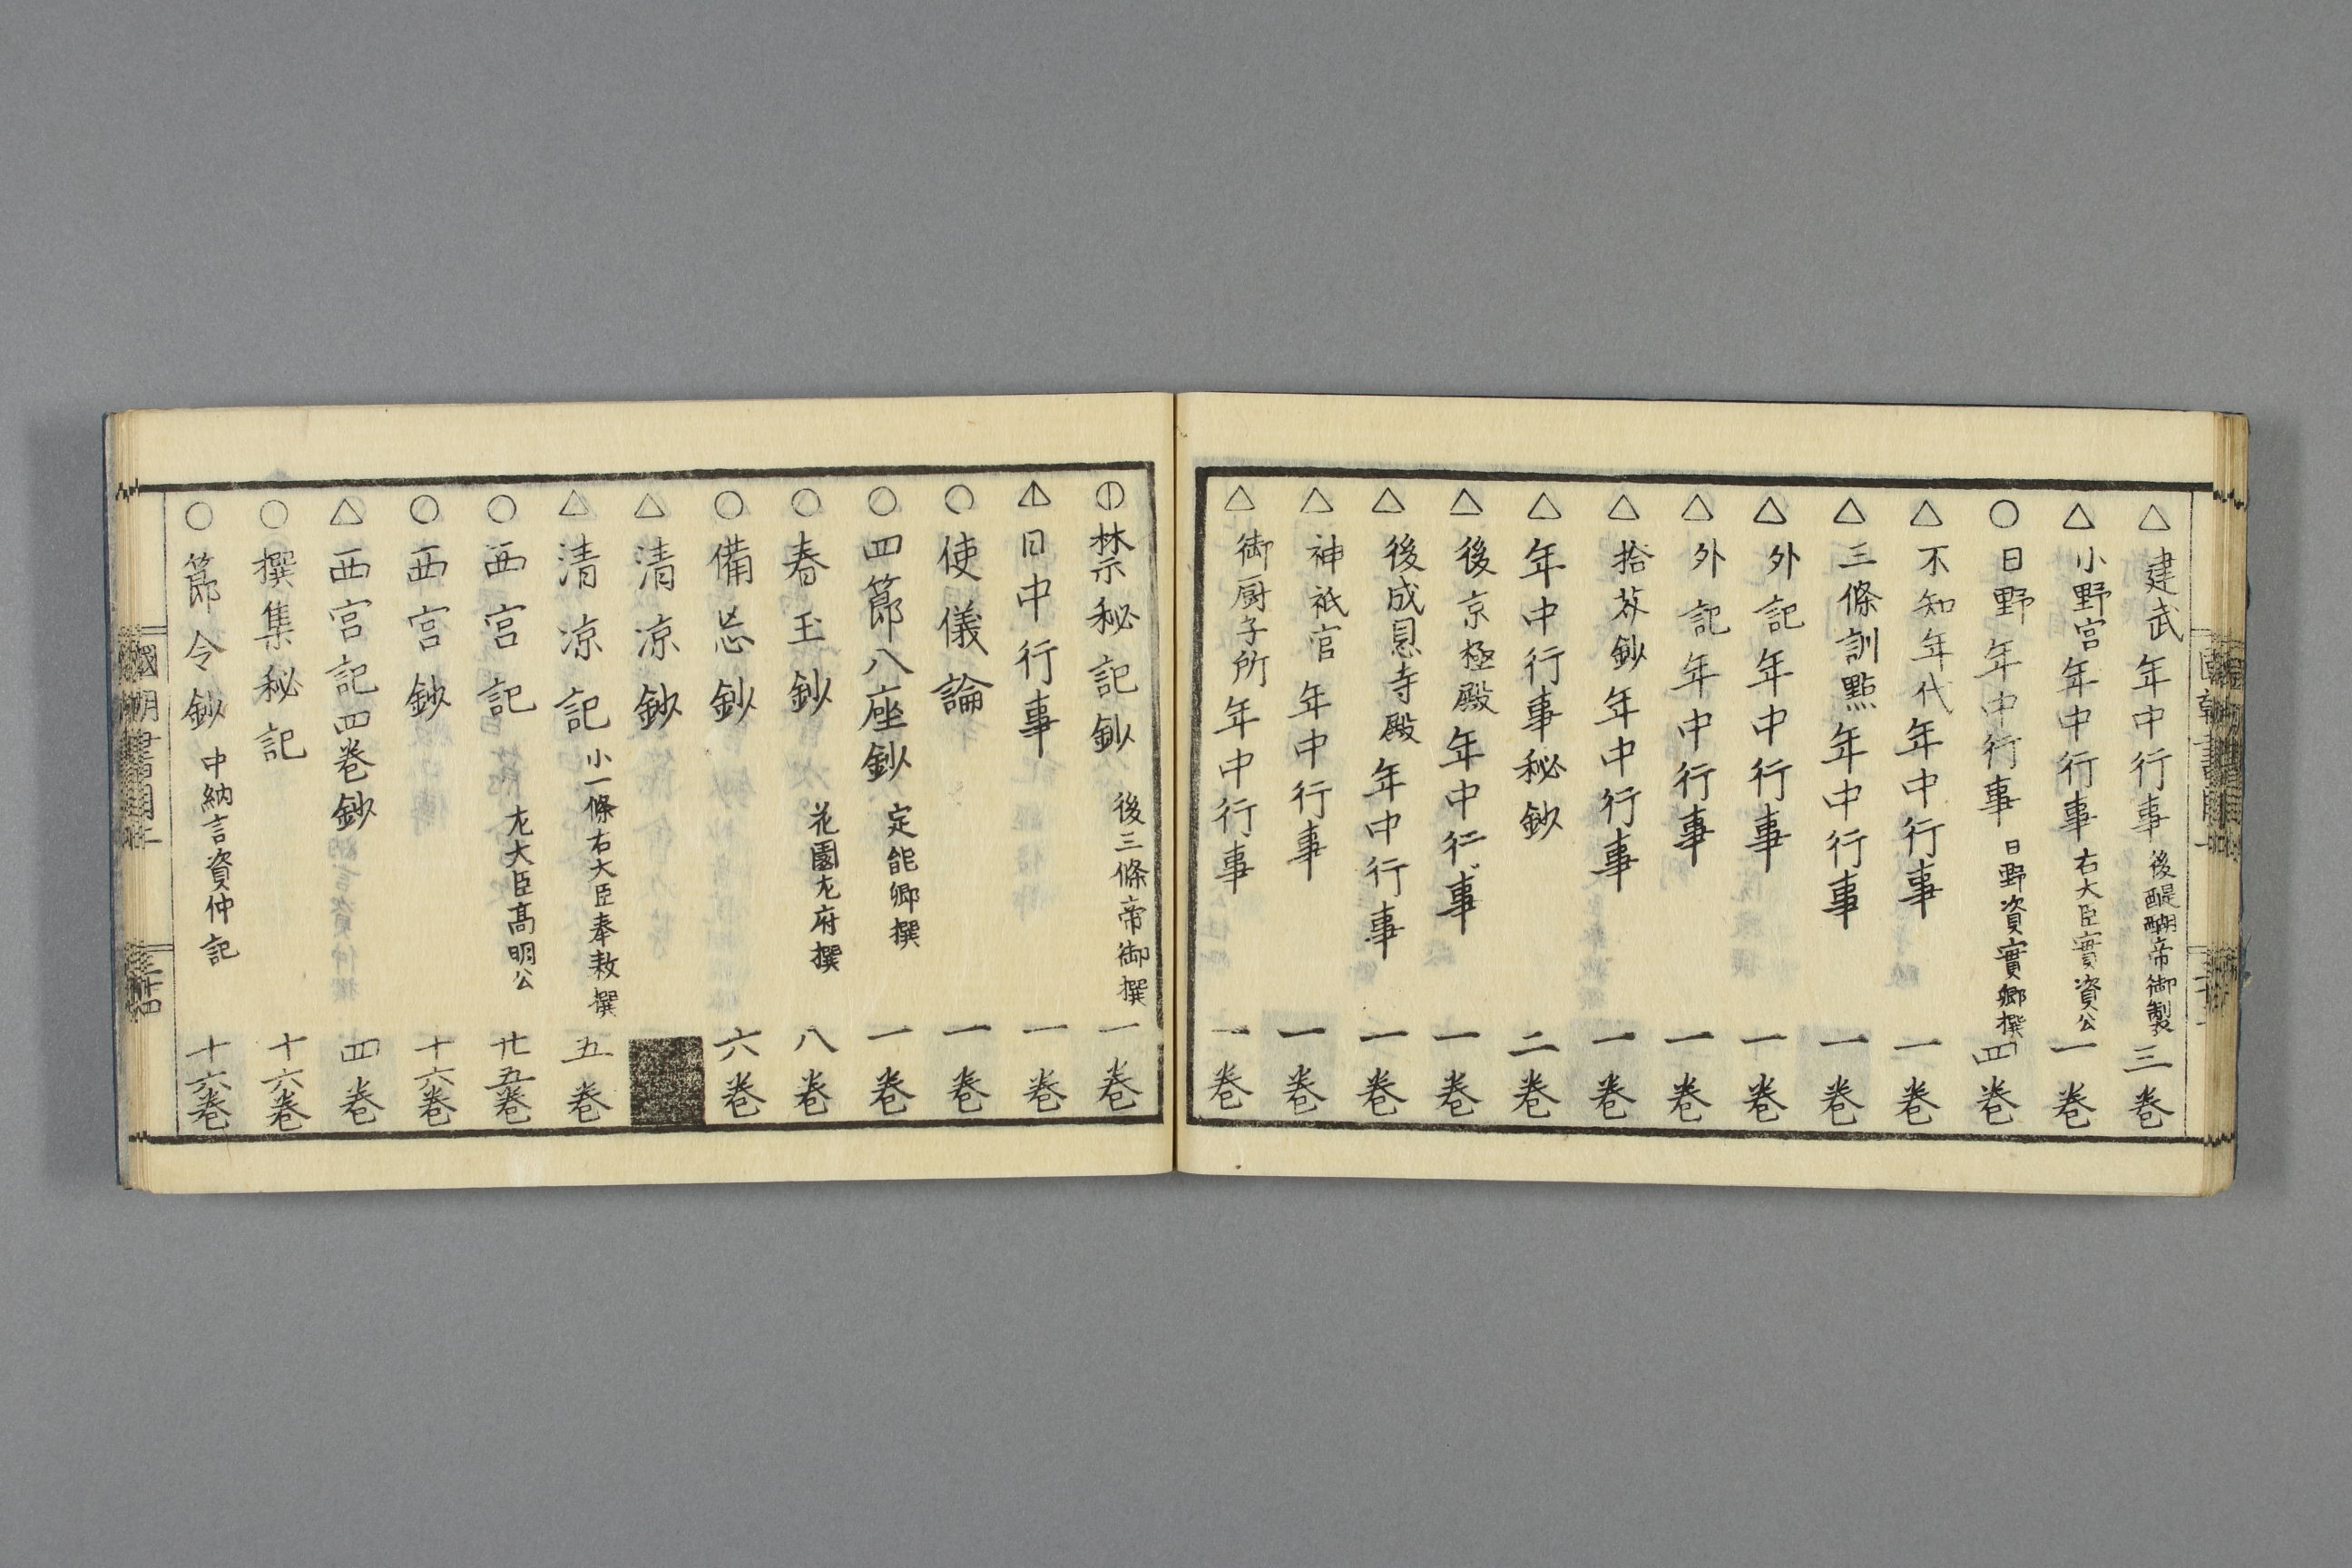 △建武年中行事 後醍醐帝御製 三卷
△小野宮年中行事 右大臣實資公 一卷
○日野年中行事 日野資實卿撰 四卷
△不知年代年中行事 一卷
△三條訓點年中行事 一卷
△外記年中行事 一卷
△外記年中行事 一卷
△拾芥鈔年中行事 一卷
△年中行事秘鈔 二卷
△後京極殿年中行事 一卷
△後成恩寺殿年中行事 一卷
△神祇官年中行事 一卷
△御厨子所年中行事 一卷
⦶禁秘記鈔 後三條帝御撰 一卷
◬日中行事 一卷
○使儀論 一卷
○四節八座鈔 定能卿撰 一卷
○春玉鈔 花園左府撰 八卷
○備忘鈔 六卷
△清凉鈔
△清凉記 小一條右大臣奉敕撰 五卷
○西宮記 左大臣高明公 廿五卷
○西宮鈔 十六卷
△西宮記四卷鈔 四卷
○撰集秘記 十六卷
○節令鈔 中納言資仲記 十六卷